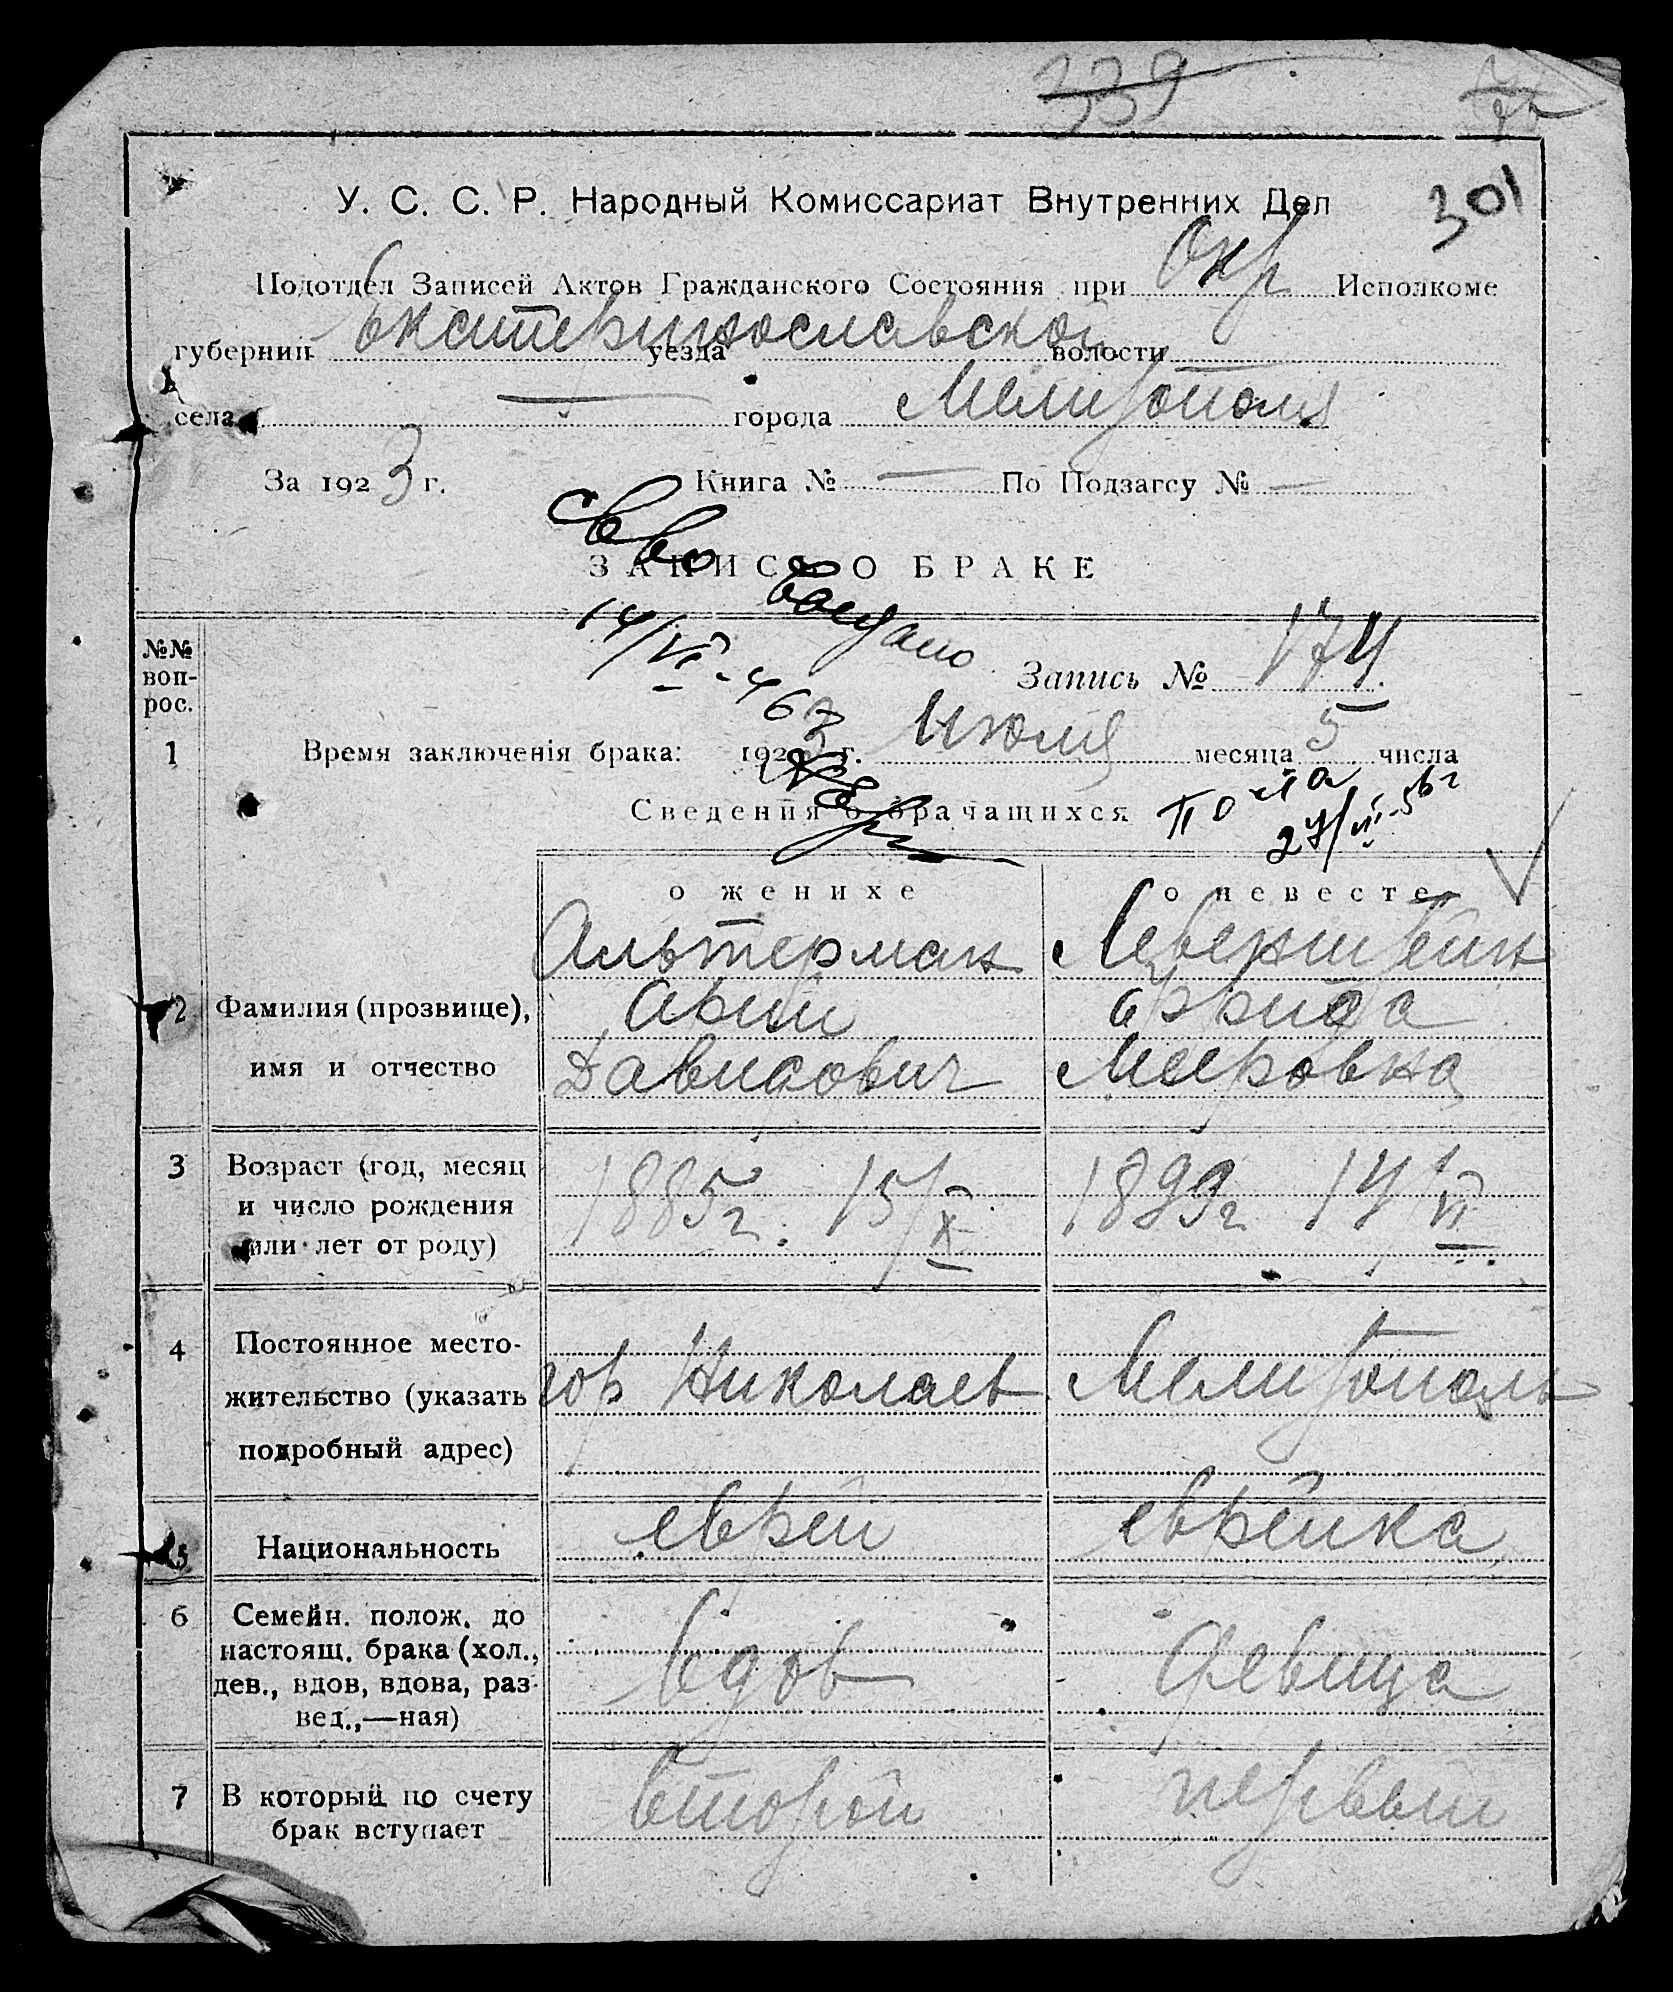 339
301
У. С. С. Р. Народный Комиссариат Внутренних Дел
Подотдел Записей Актов Гражданского Состояния при Окр Исполкоме
губернии Екатеринославской уезда волости
села — города Мелитополя
За 1923 г. Книга № — По Подзагсу № —
ЗАПИСЬ О БРАКЕ
св во выдано
14/VI-46
№№ вопрос.
Запись № 174
1 Время заключенія брака: 1923 г. Июля месяца 5 числа
Сведения о брачащихся
27/VI-56 г
о женихе о невесте
Альтерман Левенштейн
2 Фамилия (прозвище), Арий Фрида
имя и отчество Давидович Мееровна
3 Возраст (год, месяц
и число рождения 1885 г. 15/X 1899 г 14/VI
или лет от роду)
4 Постоянное место-
жительство (указать гор Николаев Мелитополь
подробный адрес)
5 Национальность еврей еврейка
6 Семейн. полож. до
настоящ. брака (хол.,
дев., вдов, вдова, раз- вдов девица
вед.,—ная)
7 В который по счету второй первый
брак вступает